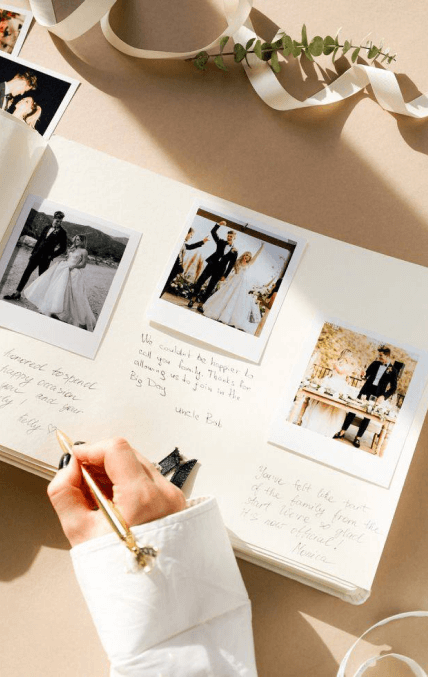 honored to spend
happy occasion
you and your
Kelly ♡
We couldn't be happier to
call you family. Thanks for
allowing us to join in the
Big Day
uncle Bob
You've felt like part
of the family from the
start. We're so glad
it's now official!
Monica